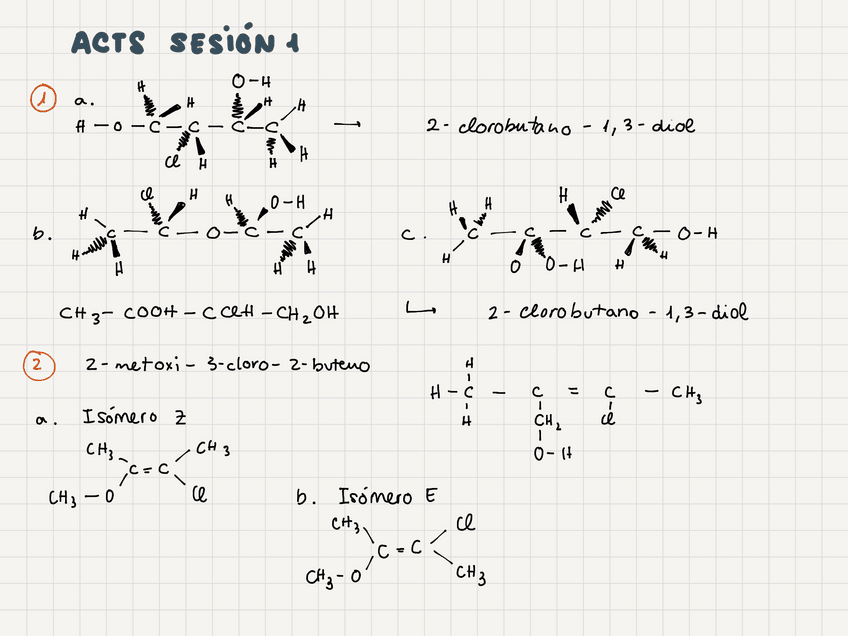 ACTS SESIÓN 1
1 a.
H O-H
H H H
H - O - C - C - C - C → 2-clorobutano-1,3-diol
Cl H H H
Cl H H O-H H Cl
H H H H
b. C - C - O - C - C c. C - C - C - C - O-H
H H H H H O O-H H H
CH3 - COOH - CClH - CH2OH ↳ 2-clorobutano-1,3-diol
2 2-metoxi-3-cloro-2-buteno
H
H - C - C = C - CH3
H CH2 Cl
O-H
a. Isómero Z
CH3 CH3
C = C
CH3 - O Cl
b. Isómero E
CH3 Cl
C = C
CH3 - O CH3